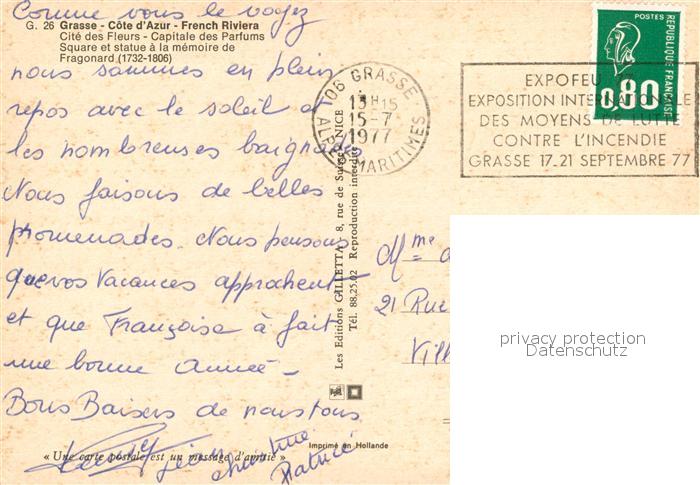 Comme vous le voyez
G. 26 Grasse - Côte d'Azur - French Riviera
Cité des Fleurs - Capitale des Parfums
Square et statue à la mémoire de
Fragonard (1732-1806)
nous sommes en plein
repos avec le soleil et
les nombreuses baignades
Nous faisons de belles
promenades. Nous pensons
que vos Vacances approchent
et que Françoise à fait
une bonne année -
Bons Baisers de nous tous
Christine
Patrice
« Une carte postale est un message d'amitié »
Imprimé en Hollande
Les Editions GILLETTA - 8, rue de Suisse - NICE
Tél. 88.25.02 Reproduction interdite
06 GRASSE
13H15
15-7
1977
ALPES MARITIMES
EXPOFEU 77
EXPOSITION INTERNATIONALE
DES MOYENS DE LUTTE
CONTRE L'INCENDIE
GRASSE 17.21 SEPTEMBRE 77
POSTES
REPUBLIQUE FRANÇAISE
0,80
Mme
21 Rue
Vill
privacy protection
Datenschutz